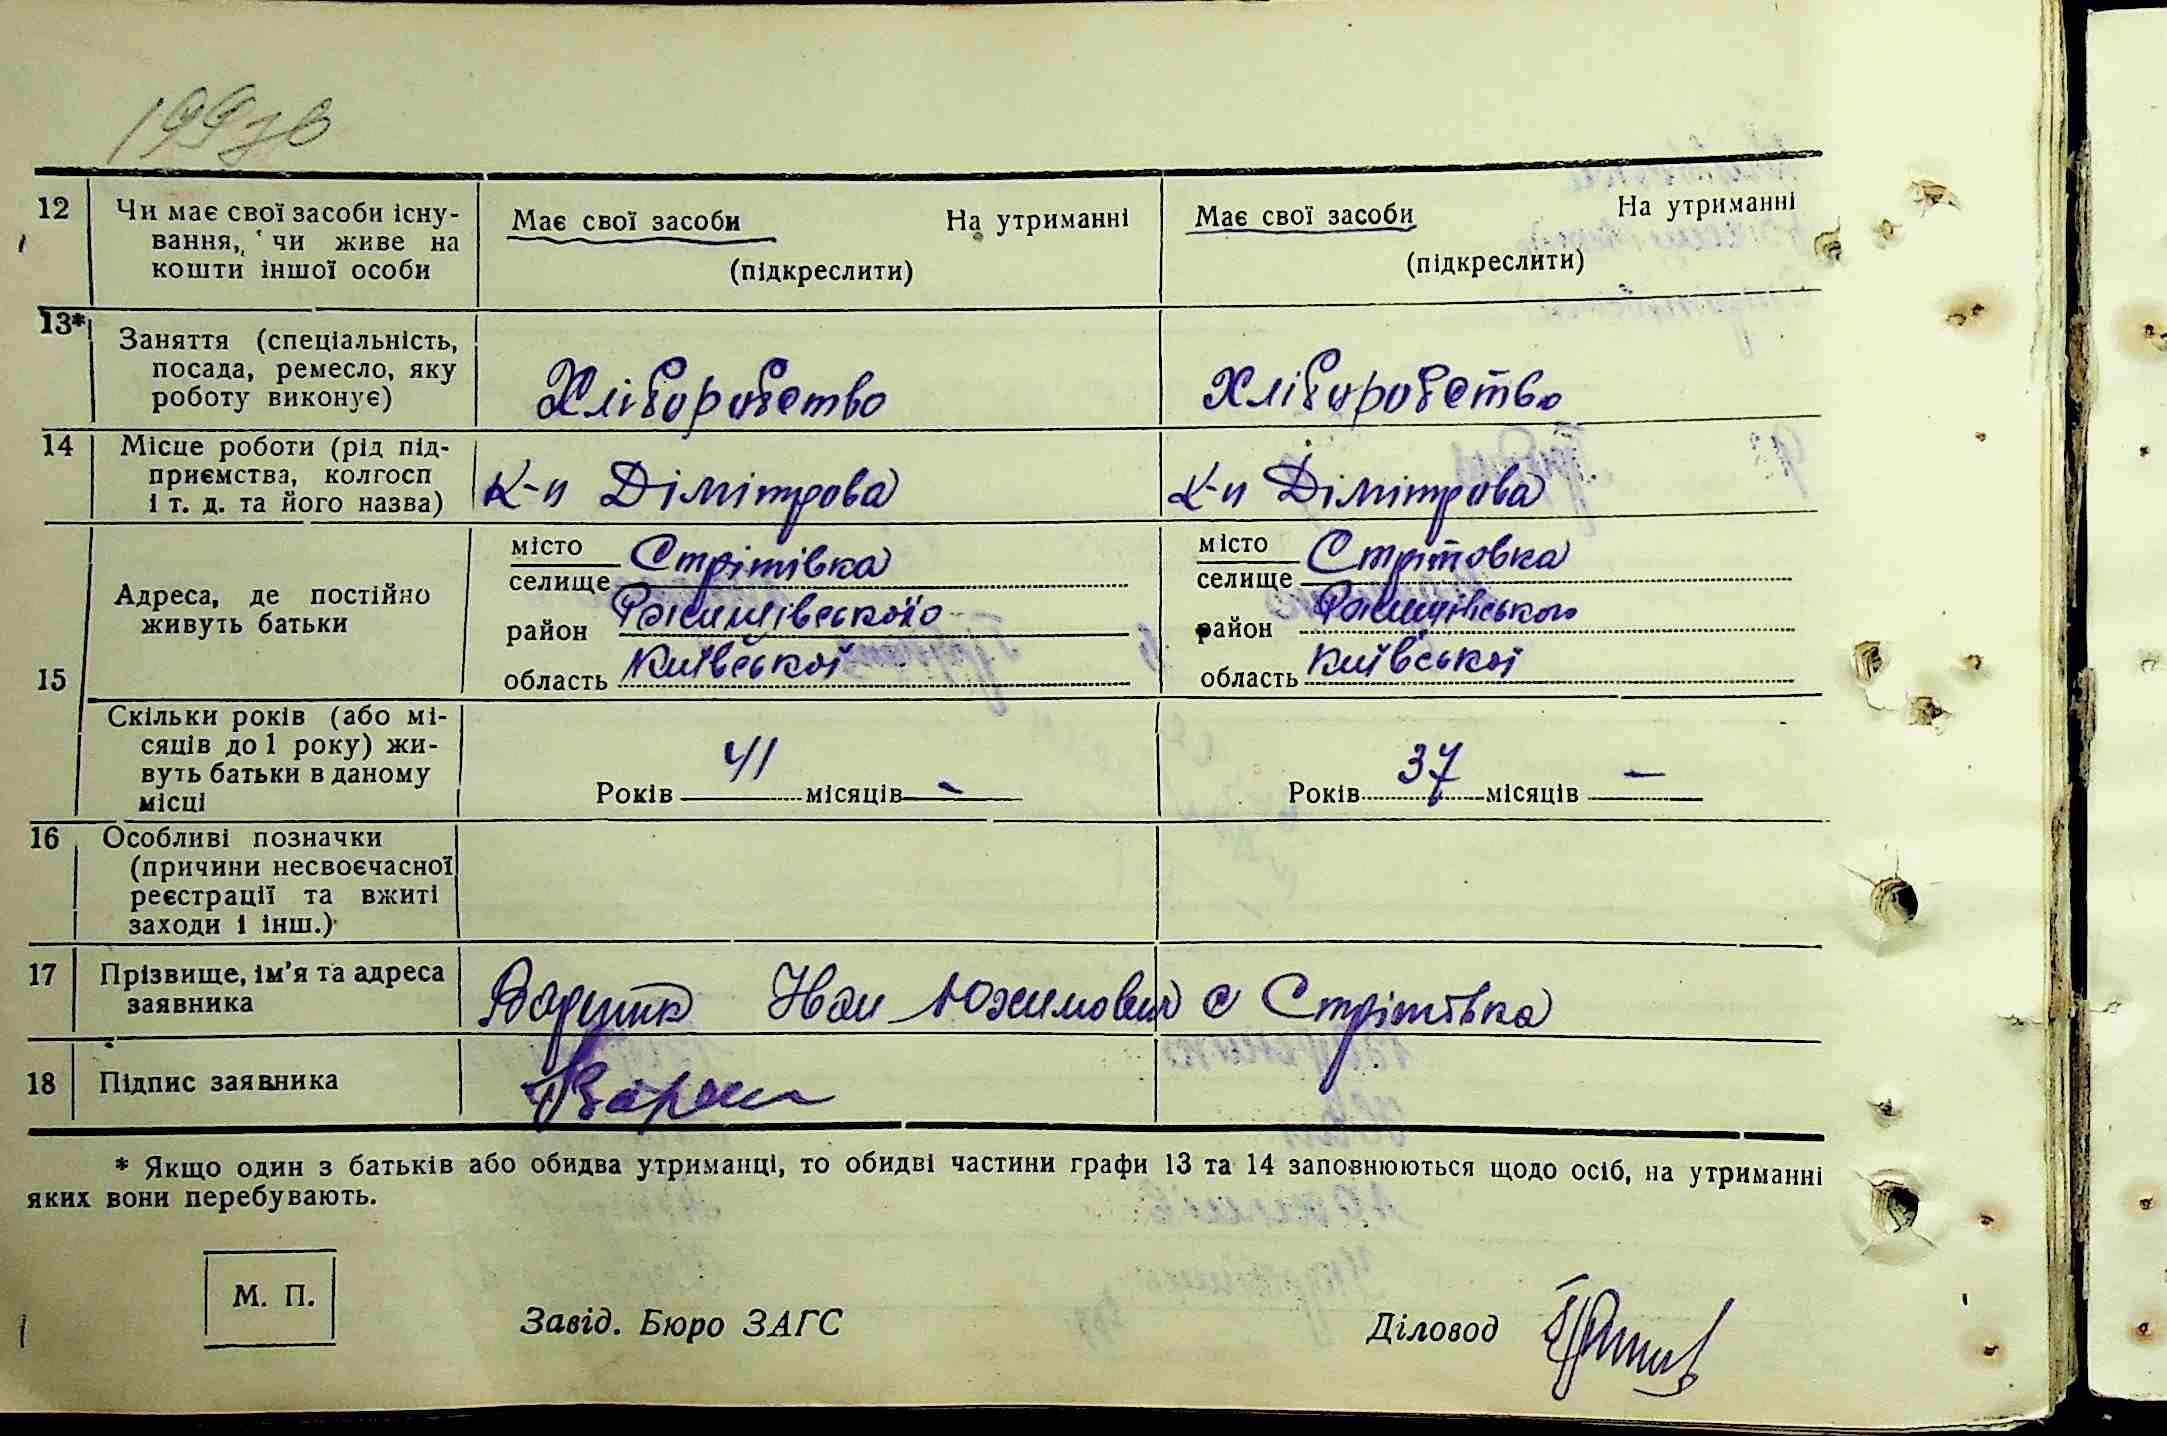 199зв
12 Чи має свої засоби існу- Має свої засоби На утриманні Має свої засоби На утриманні
вання, чи живе на
кошти іншої особи (підкреслити) (підкреслити)
13* Заняття (спеціальність,
посада, ремесло, яку Хліборобство Хліборобство
роботу виконує)
14 Місце роботи (рід під-
приємства, колгосп К-п Дімітрова К-п Дімітрова
і т. д. та його назва)
15 Адреса, де постійно
живуть батьки
місто Стрітівка місто Стрітовка
селище селище
район Ржищівського район Ржищівського
область Київської область Київської
Скільки років (або мі-
сяців до 1 року) жи-
вуть батьки в даному
місці
Років 41 місяців - Років 37 місяців -
16 Особливі позначки
(причини несвоєчасної
реєстрації та вжиті
заходи і інш.)
17 Прізвище, ім'я та адреса
заявника
Іван Юхимович с Стрітівка
18 Підпис заявника
* Якщо один з батьків або обидва утриманці, то обидві частини графи 13 та 14 заповнюються щодо осіб, на утриманні
яких вони перебувають.
М. П.
Завід. Бюро ЗАГС Діловод